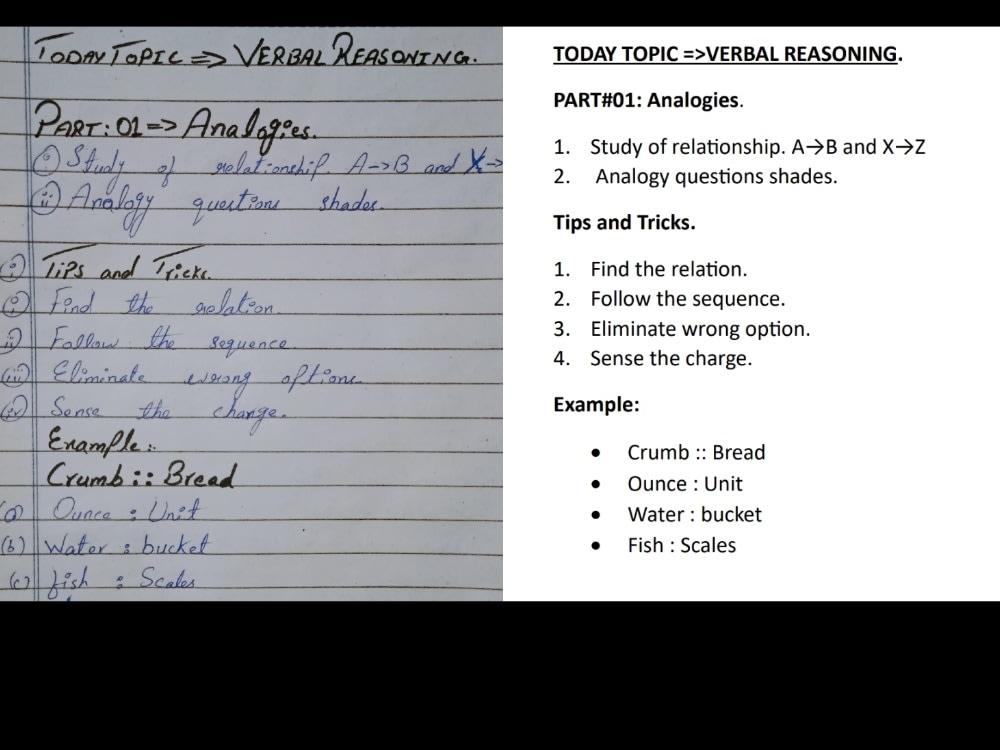 TODAY TOPIC => VERBAL REASONING.
PART: 01 => Analogies.
(i) Study of relationship. A->B and X->
(ii) Analogy questions shades.
(i) Tips and Tricks.
(i) Find the relation.
(ii) Follow the sequence.
(iii) Eliminate wrong options.
(iv) Sense the change.
Example:
Crumb :: Bread
(a) Ounce : Unit
(b) Water : bucket
(c) fish : Scales
TODAY TOPIC =>VERBAL REASONING.
PART#01: Analogies.
1. Study of relationship. A→B and X→Z
2. Analogy questions shades.
Tips and Tricks.
1. Find the relation.
2. Follow the sequence.
3. Eliminate wrong option.
4. Sense the charge.
Example:
• Crumb :: Bread
• Ounce : Unit
• Water : bucket
• Fish : Scales